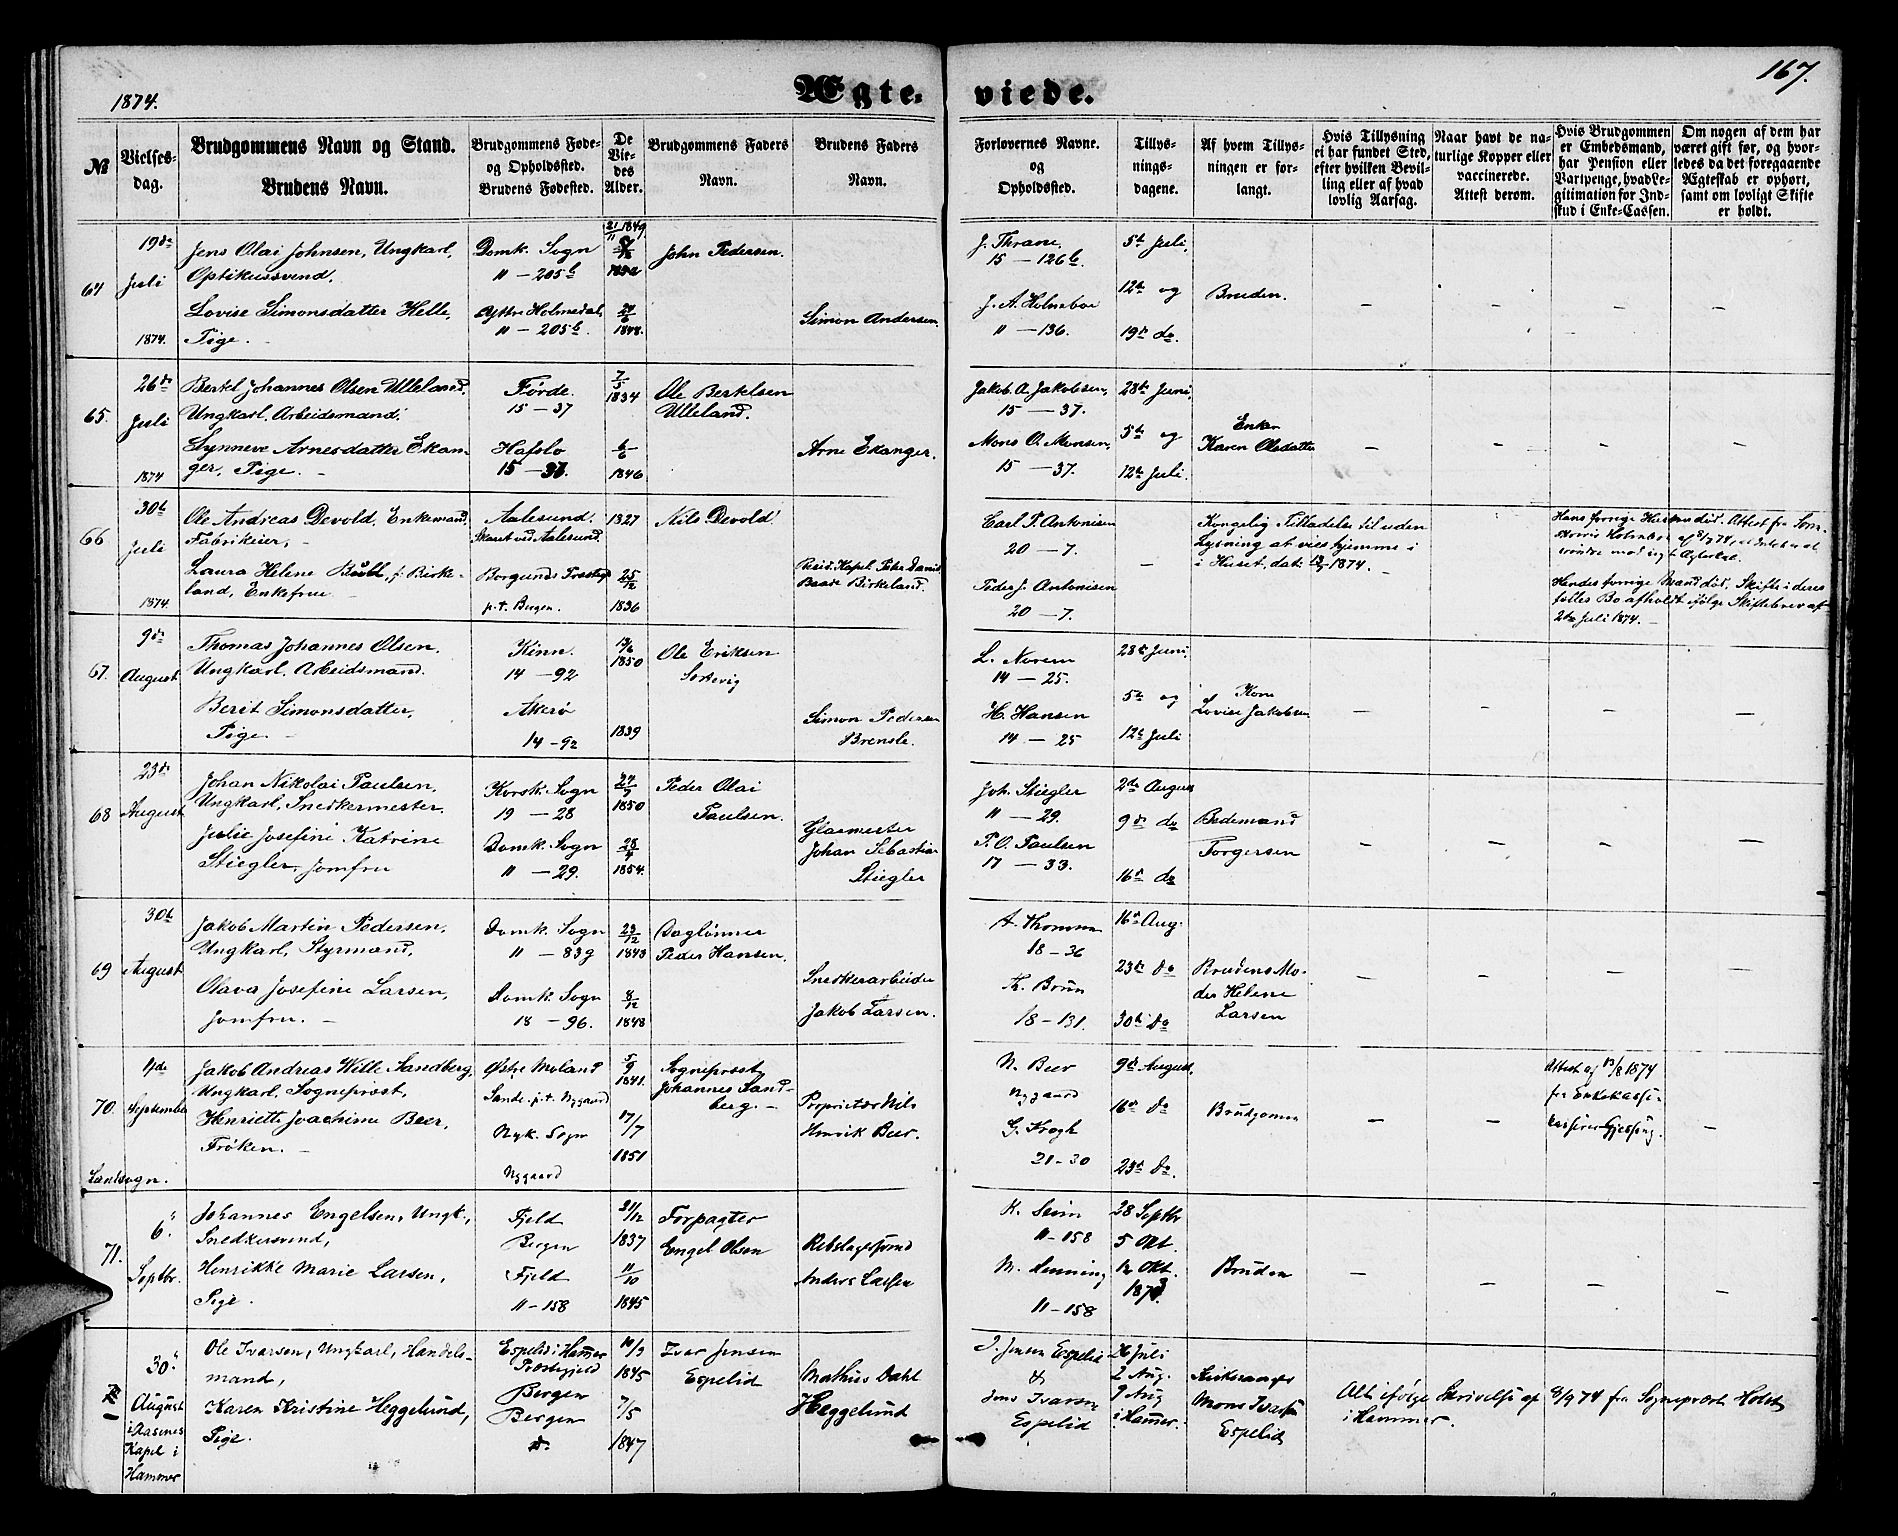 1874.
Ægte-
viede.
167.
№
Vielses-
dag.
Brudgommens Navn og Stand.
Brudens Navn.
Brudgommens Føde-
og Opholdssted.
Brudens Fødested.
De
Vie-
des
Alder.
Brudgommens Faders
Navn.
Brudens Faders
Navn.
Forlovernes Navne.
og
Opholdssted.
Tillys-
nings-
dagene.
Af hvem Tillys-
ningen er for-
langt.
Hvis Tillysning
ei har fundet Sted,
efter hvilken Bevil-
ling eller af hvad
lovlig Aarsag.
Naar havt de na-
turlige Kopper eller
vaccinerede.
Attest derom.
Hvis Brudgommen
er Embedsmand,
har Pension eller
Vartpenge, hvad Le-
gitimation for Ind-
skud i Enke-Cassen.
Om nogen af dem har
været gift før, og hvor-
ledes da det foregaaende
Ægteskab er ophørt,
samt om lovligt Skifte
er holdt.
64
19de
Juli
1874.
Jens Olai Johnsen, Ungkarl,
Optikussvend.
Lovise Simonsdatter Helle,
Pige. -
Domk. Sogn
11 - 205 b
Yttre Holmedal,
11 - 205 b.
21/11 1849
1848.
John Pedersen.
Simon Andersen.
J. Thrane.
15 - 126 b.
J. A. Holmboe
11 - 136.
5te Juli,
12te og
19de do.
Bruden.
65.
26de
Juli
1874
Bertel Johannes Olsen Ulleland,
Ungkarl. Arbeidsmand.
Synneve Arnesdatter Ekan-
ger, Pige. -
Førde.
15 - 37
Hafslo
15 - 37.
7/5
1834
6/6
1846
Ole Bertelsen
Ulleland.
Arne Ekanger.
Jakob A. Jakobsen,
15 - 37.
Mons O. Monsen,
15 - 37.
28de Juni,
5te og
12te Juli.
Enken
Karen Olsdatter
66
30te
Juli
1874.
Ole Andreas Devold, Enkemand,
Fabrikeier, -
Laura Helene Buhl, f. Birke-
land, Enkefrue -
Aalesund.
Skaret ved Aalesund.
Borgunds Præstegj.
p.t. Bergen.
1827
25/12
1836
Nils Devold.
Resid. Kapel. Peter Daniel
Baade Birkeland.
Carl P. Antonisen
20 - 7.
Peder J. Antonisen
20 - 7.
Kongelig Tilladelse til uden
Lysning at vies hjemme i
i Huset, dat. 1874. -
Hans forrige Hustru død. Attest fra
Hendes forrige Mand død. Skifte i deres
fælles Bo afholdt ifølge Skiftebrev af
Juli 1874. -
67.
9de
August
Thomas Johannes Olsen,
Ungkarl, Arbeidsmand.
Berit Simonsdatter,
Pige. -
Kinn.
14 - 92
Akerø
14 - 92
1850
1839
Ole Eriksen
Simon Pedersen
L. Norem
14 - 25.
H. Hansen
14 - 25
28de Juni,
5te og
12te Juli
Kone
Lovise Jakobsen
68
23de
August
Johan Nikolai Paulsen,
Ungkarl, Snedkermester.
Julie Josefine Katrine
Stiegler, Jomfru
Korsk. Sogn
19 - 28
Domk. Sogn
11 - 29.
1850
1854.
Peder Olai
Paulsen.
Glasmester
Johan Sebastian
Stiegler
Joh. Stiegler
11 - 29.
P. O. Paulsen
17 - 33.
2den August
9de do
16de do
Bedemand
Torgersen
69
30te
August
Jakob Martin Pedersen,
Ungkarl, Styrmand,
Olava Josefine Larsen,
Jomfru. -
Domk. Sogn
11 - 839
Domk. Sogn
18 - 96.
1843
8/12
1848
Daglønner
Peder Hansen.
Snedkerarbeider
Jakob Larsen.
18 - 36
18 - 131.
16de Aug.
23de do
30te do
Brudens Mo-
der Helene
Larsen
70.
4de
September
Landsogn.
Jakob Andreas Wille Sandberg,
Ungkarl, Sogneprest,
Henriette Joachime Beer,
Frøken. -
Østre Moland
Sande p.t. Nygaard
Nyk. Sogn
Nygaard
5/9
1841.
17/7
1851
Sogneprest
Johannes Sand-
berg. -
Proprietær Nils
Henrik Beer.
N. Beer
Nygaard
G. Krogh
21 - 30
9de August
16de do
23de do.
Brudgommen
Attest af 13/8 1874
fra Enkekasse-
71.
6.
Septbr.
Johannes Engelsen, Ungk.,
Snedkersvend,
Henrikke Marie Larsen,
Pige.
Fjeld
Bergen
Fjeld
11 - 158
31/12
1837
11/10
1845
Forpagter
Engel Olsen
Rebslagersvend
Anders Larsen
K. Seim
11 - 158
M. Henning
11 - 158
28 Septbr
5 Okt.
12 Okt.
1873.
Bruden
30.
August
i Aasenes
Kapel i
Hammer
Ole Ivarsen, Ungkarl, Handels-
mand,
Karen Kristine Heggelund,
Pige.
Espelid i Hammer
Præstegjeld
Bergen
Bergen
do.
1845
7/5
1847
Ivar Jensen
Espelid
Mathias Dahl
Heggelund
J. Jensen Espelid
&
Jens Ivarsen
Espelid
26 Juli
2 Aug.
9 Aug
i Hammer.
Kirkesanger
Mons Ivarsen
Espelid
Alt ifølge Skrivelse af 8/9 74 fra Sogneprest Holst
i Hammer.